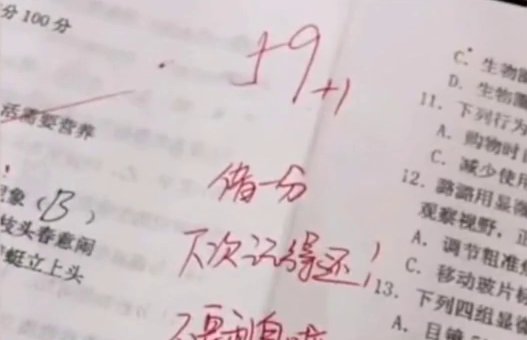 分100分
59+1
活需要营养
借一分
象（B）
枝头春意闹
蜓立上头
下次记得还！
C. 生物
D. 生物
11. 下列行为
A. 购物时
C. 减少使用
12. 潞潞用显微
观察视野，
A. 调节粗准
C. 移动玻片标
13. 下列四组显微
A. 目镜